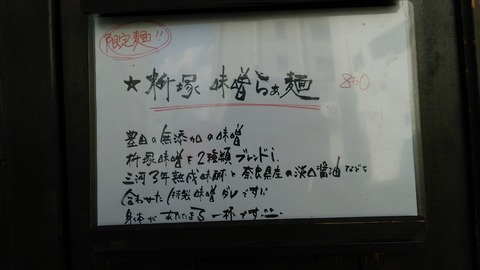 限定麺!!
★枡塚 味噌らぁ麺 850
豊田の無添加の味噌
枡塚味噌を2種類ブレンドし
三河3年熟成味醂と奈良県産の淡口醤油などを
合わせた特製味噌ダレです!!
身体があたたまる一杯です!!